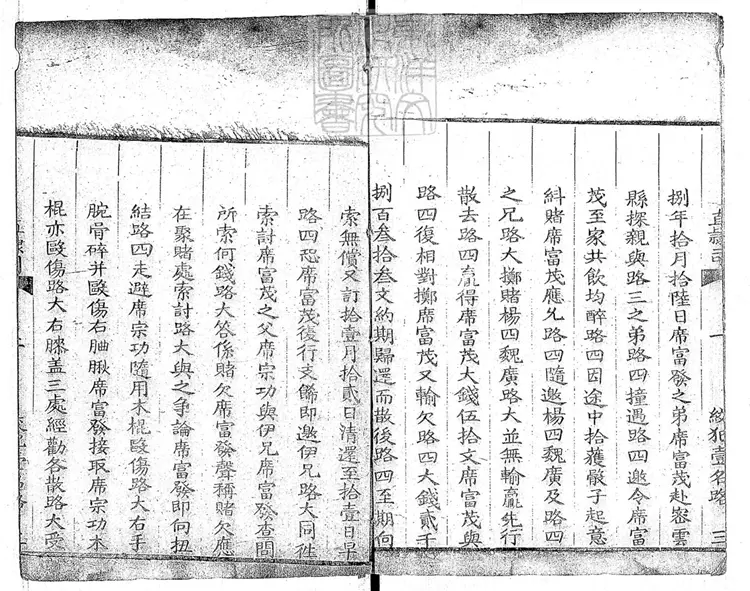 捌年拾月拾陸日席富發之弟席富茂赴密雲
縣探親與路三之弟路四撞遇路四邀令席富
茂至家共飲均醉路四因途中拾獲骰子起意
糾賭席富茂應允路四隨邀楊四魏廣及路四
之兄路大擲賭楊四魏廣路大並無輸贏先行
散去路四贏得席富茂大錢伍拾文席富茂與
路四復相對擲席富茂又輸欠路四大錢貳千
捌百叁拾叁文約期歸還而散後路四至期向
索無償又訂拾壹月拾貳日清還至拾壹日早
路四恐席富茂復行支飾即邀伊兄路大同往
索討席富茂之父席宗功與伊兄席富發查問
所索何錢路大答係賭欠席富發聲稱賭欠應
在聚賭處索討路大與之爭論席富發即向扭
結路四走避席宗功隨用木棍毆傷路大右手
腕骨碎并毆傷右胎膊席富發接取席宗功木
棍亦毆傷路大右膝蓋三處經勸各散路大受